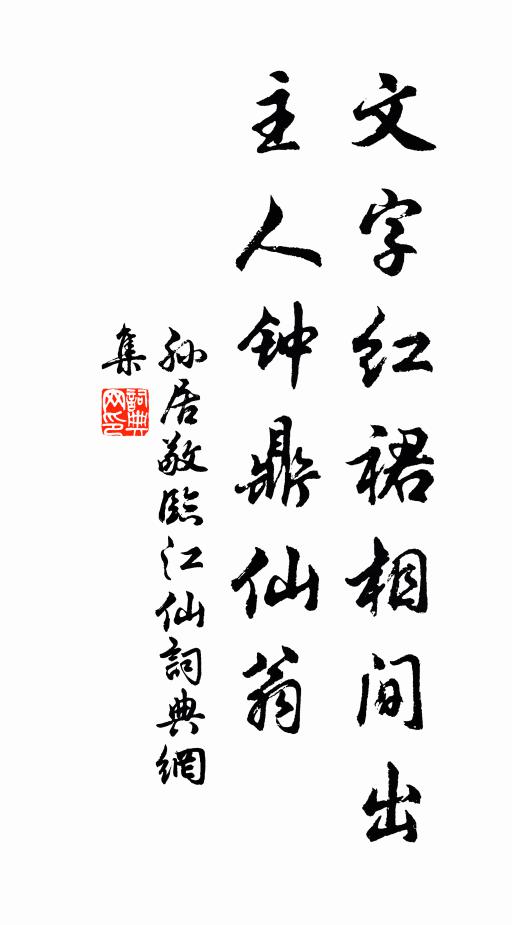 文字红裙相间出
主人钟鼎仙翁
孙居敬临江仙詞典網
集
詞典网印